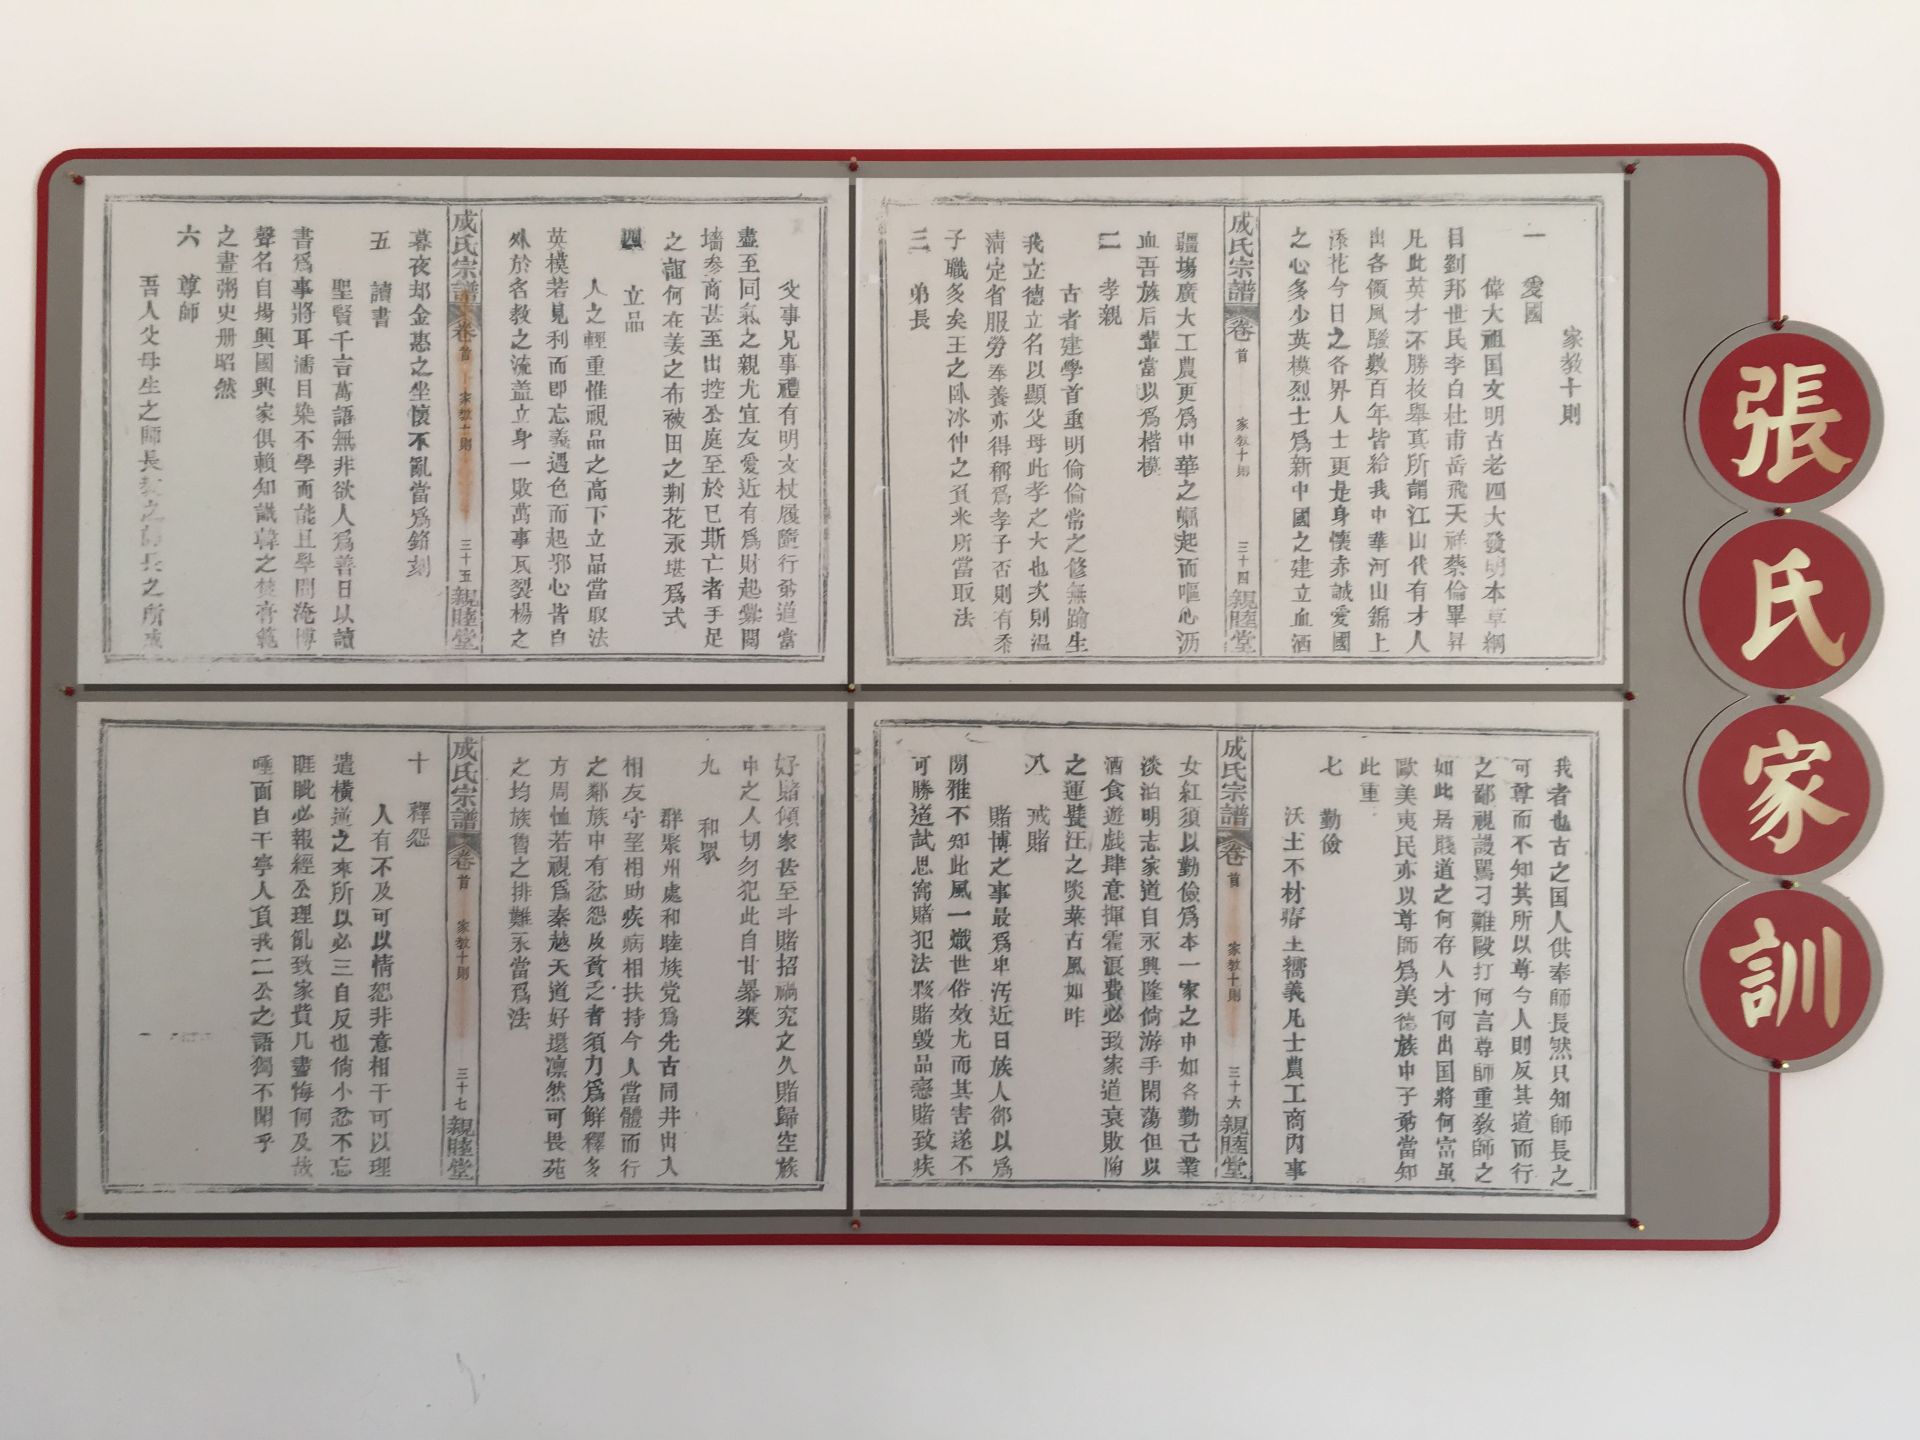 張氏家訓
家教十則
一 愛國
偉大祖国文明古老四大發明本草綱
目劉邦世民李白杜甫岳飛天祥蔡倫畢昇
凡此英才不勝枚舉真所謂江山代有才人
出各領風騷數百年皆給我中華河山錦上
添花今日之各界人士更是身懷赤誠愛國
之心多少英模烈士爲新中國之建立血洒
成氏宗譜 卷首 家教十則 三十四 親睦堂
疆場廣大工農更爲中華之崛起而嘔心沥
血吾族后輩當以爲楷模
二 孝親
古者建學首重明倫倫常之修無踰生
我立德立名以顯父母此孝之大也次則温
清定省服勞奉養亦得稱爲孝子否則有忝
子職多矣王之卧冰仲之負米所當取法
三 弟長
父事兄事禮有明文杖履隨行弟道當
盡至同氣之親尤宜友愛近有爲財起釁鬩
墻参商甚至出控公庭至於已斯亡者手足
之誼何在姜之布被田之荆花永堪爲式
四 立品
人之輕重惟視品之高下立品當取法
英模若見利而即忘義遇色而起邪心皆自
外於名教之流盖立身一敗萬事瓦裂楊之
成氏宗譜 卷首 家教十則 三十五 親睦堂
暮夜却金惠之坐懷不亂當爲銘刻
五 讀書
聖賢千言萬語無非欲人爲善日以讀
書爲事將耳濡目染不學而能且學問淹博
聲名自揚興國興家俱賴知識韓之焚膏範
之畫粥史册昭然
六 尊師
吾人父母生之師長教之師長之所成
我者也古之国人供奉師長然只知師長之
可尊而不知其所以尊今人則反其道而行
之鄙視謾駡刁難毆打何言尊師重教師之
如此居賤道之何存人才何出国將何富虽
歐美夷民亦以尊師爲美德族中子弟當知
此重
七 勤儉
沃土不材瘠土嚮義凡士農工商内事
女紅須以勤儉爲本一家之中如各勤己業
淡泊明志家道自永興隆倘游手閑蕩但以
酒食遊戲肆意揮霍浪費必致家道衰敗陶
成氏宗譜 卷首 家教十則 三十六 親睦堂
之運甓汪之啖菜古風如昨
八 戒賭
賭博之事最爲卑污近日族人鄒以爲
閑雅不知此風一熾世俗效尤而其害遂不
可勝道試思窩賭犯法夥賭毁品戀賭致疾
好賭傾家甚至斗賭招禍究之久賭歸空族
中之人切勿犯此自甘暴棄
九 和眾
群聚州處和睦族党爲先古同井出入
相友守望相助疾病相扶持今人當體而行
之鄰族中有忿怨及貧乏者須力爲解釋多
方周恤若視爲秦越天道好還凛然可畏苑
之均族魯之排難永當爲法
成氏宗譜 卷首 家教十則 三十七 親睦堂
十 釋怨
人有不及可以情恕非意相干可以理
遣橫逆之來所以必三自反也倘小忿不忘
睚眦必報經公理亂致家貲几盡悔何及故
唾面自干寧人負我二公之語獨不聞乎